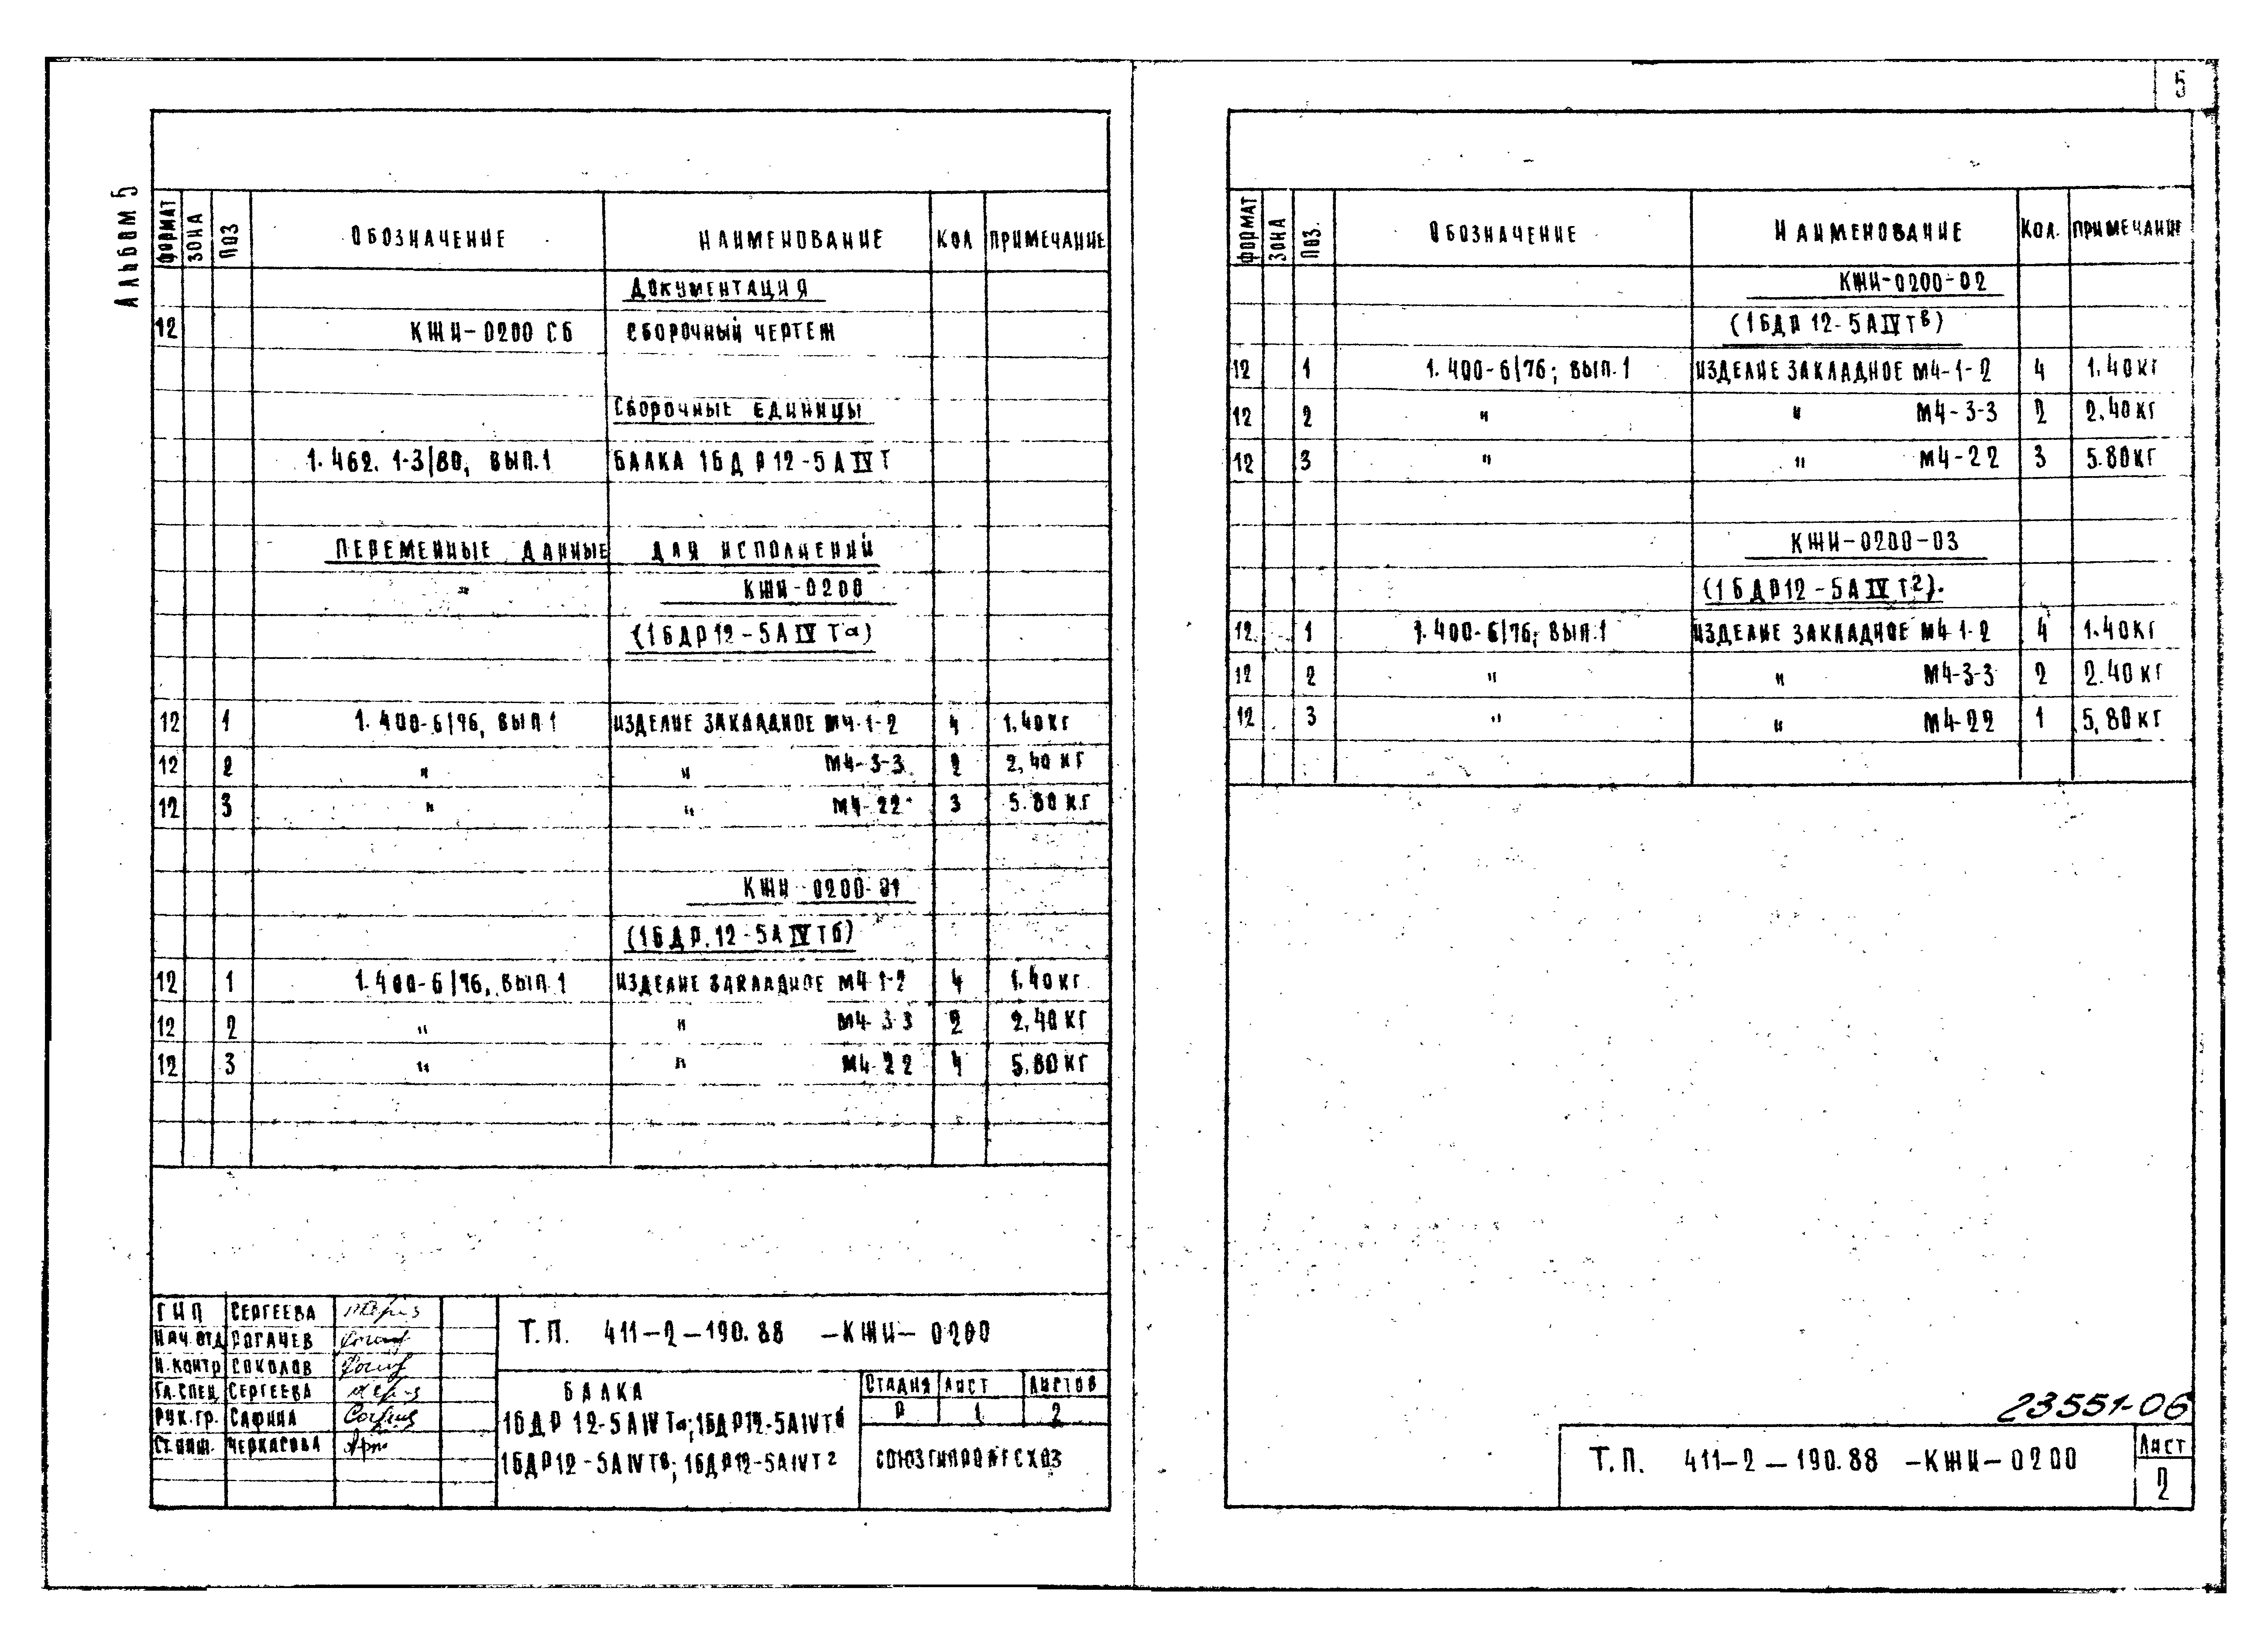 5
Альбом 5
ФОРМАТ ЗОНА ПОЗ ОБОЗНАЧЕНИЕ НАИМЕНОВАНИЕ КОЛ ПРИМЕЧАНИЕ
ДОКУМЕНТАЦИЯ
12 КЖИ-0200 СБ СБОРОЧНЫЙ ЧЕРТЕЖ
СБОРОЧНЫЕ ЕДИНИЦЫ
1.462.1-3/80, ВЫП.1 БАЛКА 1БДР12-5АIVТ
ПЕРЕМЕННЫЕ ДАННЫЕ ДЛЯ ИСПОЛНЕНИЙ
" КЖИ-0200
(1БДР12-5АIVТа)
12 1 1.400-6/76, ВЫП 1 ИЗДЕЛИЕ ЗАКЛАДНОЕ М4-1-2 4 1,40 КГ
12 2 " " М4-3-3 2 2,40 КГ
12 3 " " М4-22 3 5.80 КГ
КЖИ-0200-01
(1БДР.12-5АIVТб)
12 1 1.400-6/76, ВЫП.1 ИЗДЕЛИЕ ЗАКЛАДНОЕ М4-1-2 4 1,40 КГ
12 2 " " М4-3-3 2 2,40 КГ
12 3 " " М4-22 4 5.80 КГ
ГИП СЕРГЕЕВА
НАЧ.ОТД РОГАЧЕВ
Н.КОНТР СОКОЛОВ
ГЛ.СПЕЦ СЕРГЕЕВА
РУК.ГР. САФИНА
СТ.ИНЖ. ЧЕРКАСОВА
Т.П. 411-2-190.88 -КЖИ-0200
БАЛКА
1БДР 12-5АIVТа; 1БДР12-5АIVТб
1БДР12-5АIVТв; 1БДР12-5АIVТг
СТАДИЯ ЛИСТ ЛИСТОВ
Р 1 2
СОЮЗГИПРОЛЕСХОЗ
ФОРМАТ ЗОНА ПОЗ. ОБОЗНАЧЕНИЕ НАИМЕНОВАНИЕ КОЛ. ПРИМЕЧАНИЕ
КЖИ-0200-02
(1БДР 12-5АIVТв)
12 1 1.400-6/76; ВЫП.1 ИЗДЕЛИЕ ЗАКЛАДНОЕ М4-1-2 4 1.40 КГ
12 2 " " М4-3-3 2 2.40 КГ
12 3 " " М4-22 3 5.80 КГ
КЖИ-0200-03
(1БДР12-5АIVТг).
12 1 1.400-6/76; ВЫП.1 ИЗДЕЛИЕ ЗАКЛАДНОЕ М4-1-2 4 1.40 КГ
12 2 " " М4-3-3 2 2.40 КГ
12 3 " " М4-22 1 5,80 КГ
23551-06
Т.П. 411-2-190.88 -КЖИ-0200
ЛИСТ
2